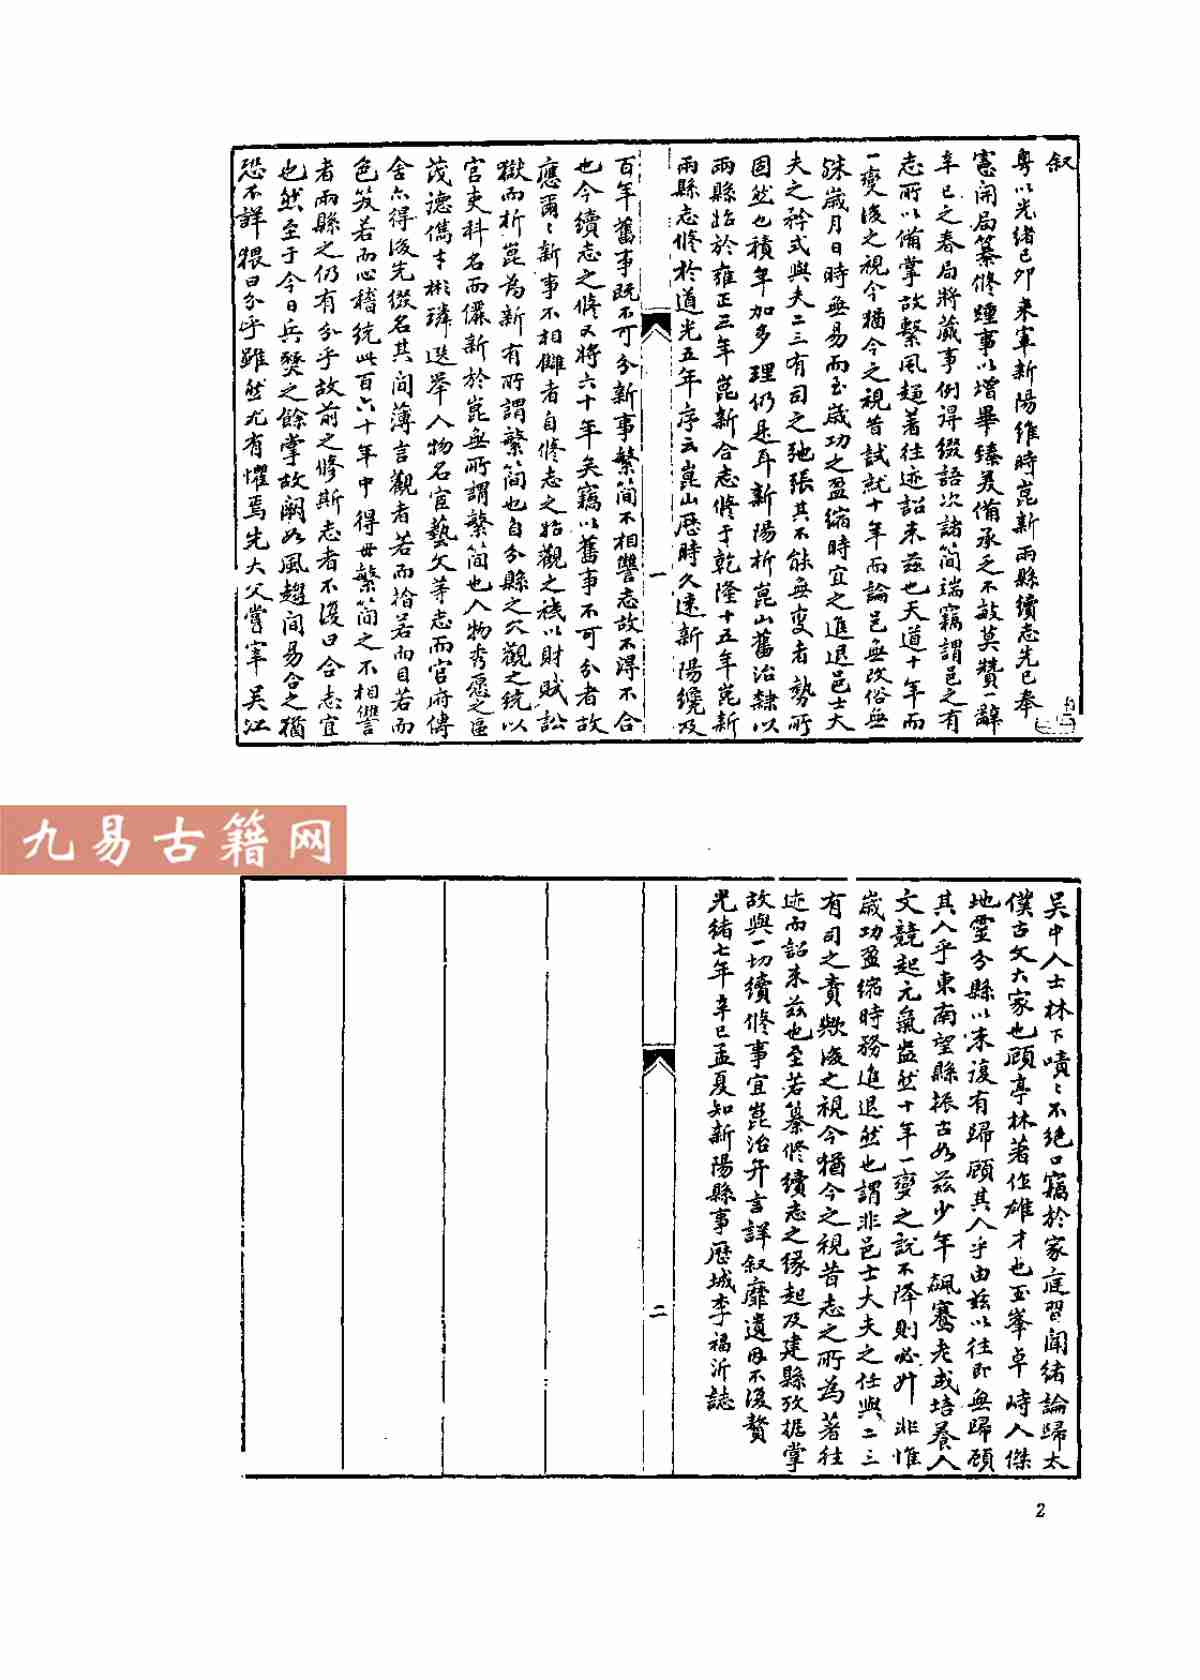 叙
粵以光緒己卯來宰新陽維時崑新兩縣續志先已奉
憲開局纂修踵事以增畢臻美備承乏不敏莫贊一辭
辛巳之春局將蕆事例得綴語次諸簡端竊謂邑之有
志所以備掌故繫風趨著往迹詔來茲也天道十年而
一變後之視今猶今之視昔試就十年而論邑無改俗無
殊歲月日時無易而至歲功之盈縮時宜之進退邑士大
夫之矜式與夫二三有司之弛張其不能無變者勢所
固然也積年加多理仍是耳新陽析崑山舊治隸以
兩縣始於雍正三年崑新合志修于乾隆十五年崑新
兩縣志修於道光五年序云崑山歷時久遠新陽纔及
百年舊事既不可分新事繁簡不相讐志故不得不合
也今續志之修又將六十年矣竊以舊事不可分者故
應爾爾新事不相讎者自修志之始觀之稅以財賦訟
獄而析崑為新有所謂繁簡也自分縣之久觀之統以
官吏科名而儷新於崑無所謂繁簡也人物秀愿之區
茂德儁才彬璘選舉人物名宦藝文等志而官府傳
舍亦得後先綴名其間薄言觀者若而拾若而目若而
色笑若而心稽統此百六十年中得毋繁簡之不相讐
者兩縣之仍有分乎故前之修斯志者不復曰合志宜
也然至于今日兵燹之餘掌故闕如風趨間易合之猶
恐不詳猥曰分乎雖然尤有懼焉先大父嘗宰吳江
一
九易古籍网
吳中人士林下嘖嘖不絕口竊於家庭習聞緒論歸太
僕古文大家也顧亭林著作雄才也玉峯卓峙人傑
地靈分縣以來復有歸顧其人乎由茲以往即無歸顧
其人乎東南望縣振古如茲少年飆騫老成培養人
文競起元氣盎然十年一變之說不降則必升非惟
歲功盈縮時務進退然也謂非邑士大夫之任與二三
有司之責歟後之視今猶今之視昔志之所為著往
迹而詔來茲也至若纂修續志之緣起及建縣攷据掌
故與一切續修事宜崑治弁言詳叙靡遺毋不復贅
光緒七年辛巳孟夏知新陽縣事歷城李福沂誌
二
2